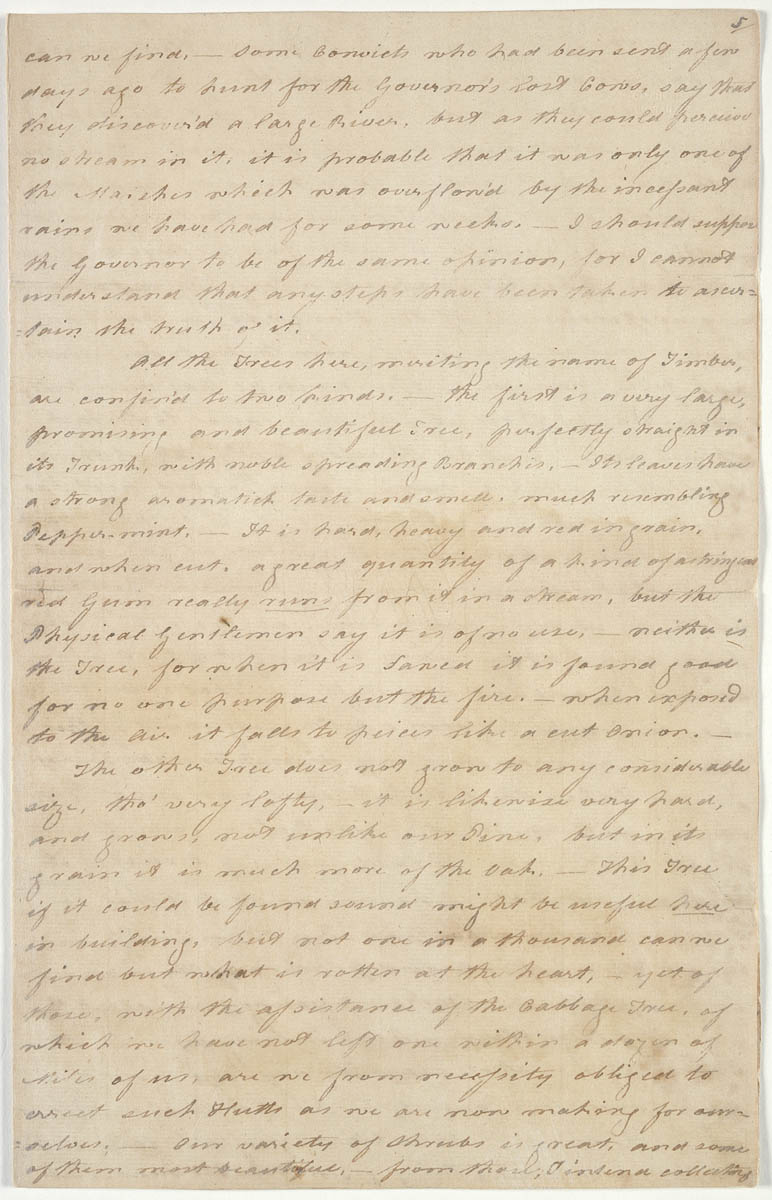 5
can we find. — Some Convicts who had been sent a few
days ago to hunt for the Governor's Lost Cows, say that
they discover'd a large River, but as they could perceive
no stream in it, it is probable that it was only one of
the Marshes which was overflow'd by the incessant
rains we have had for some weeks. — I should suppose
the Governor to be of the same opinion, for I cannot
understand that any steps have been taken to ascer=
=tain the truth of it.
All the Trees here, meriting the name of Timber,
are confin'd to two kinds. — the first is a very large,
promising and beautiful Tree, perfectly straight in
its Trunk, with noble spreading Branches, — Its leaves have
a strong aromatick taste and smell, much resembling
Pepper-mint. — It is hard, heavy and red in grain,
and when cut, a great quantity of a kind of astringent
red Gum really runs from it in a stream, but the
Physical Gentlemen say it is of no use, — neither is
the Tree, for when it is Sawed it is found good
for no one purpose but the fire. — when exposed
to the Air it falls to peices like a cut Onion. —
The other Tree does not grow to any considerable
size, tho' very lofty, — it is likewise very hard,
and grows, not unlike our Pine, but in its
grain it is much more of the Oak. — This Tree
if it could be found sound might be useful here
in building, but not one in a thousand can we
find but what is rotten at the heart, — yet of
those, with the assistance of the Cabbage Tree, of
which we have not left one within a dozen of
Miles of us, are we from necessity obliged to
erect such Hutts as we are now making for our=
=selves. — Our variety of Shrubs is great, and some
of them most beautiful, — from those, I intend collecting